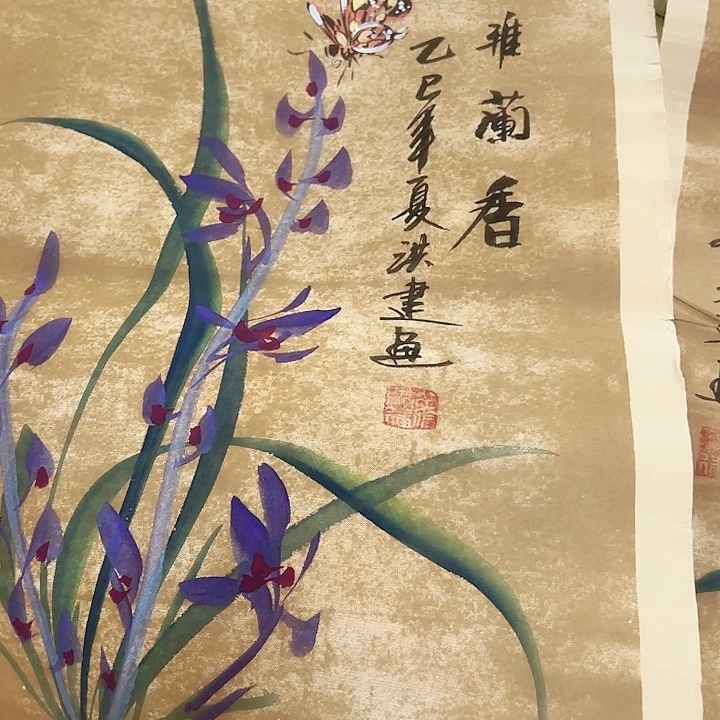 雅蘭香
乙巳年夏洪建画